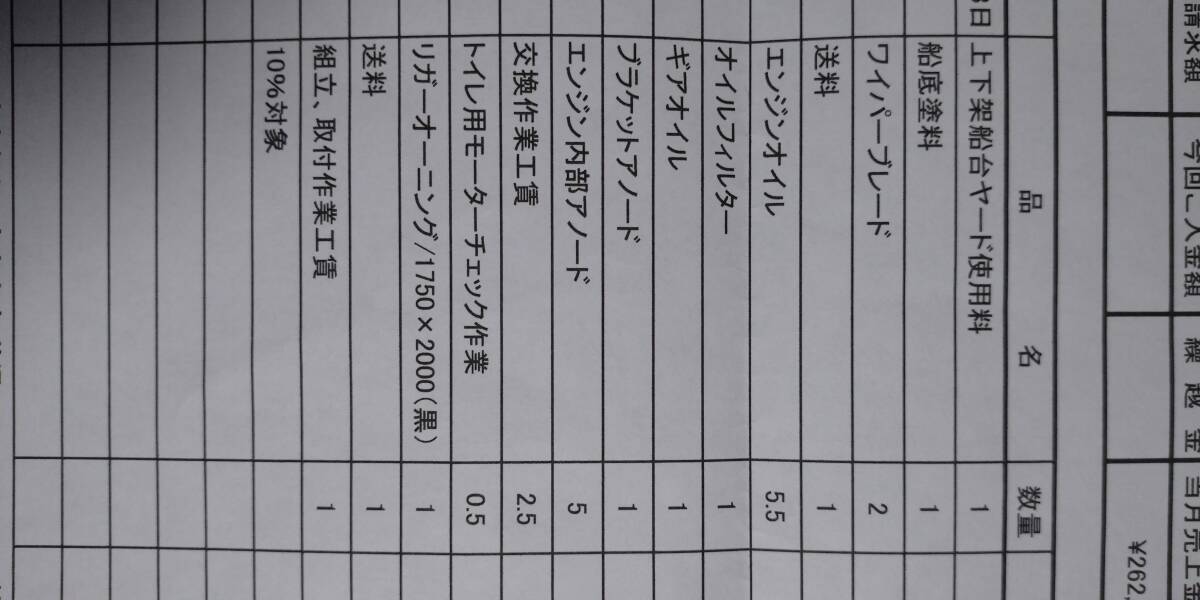 請求額 今回ご入金額 繰越金 当月売上金
¥262,
品名 数量
3日 上下架船台ヤード使用料 1
船底塗料 1
ワイパーブレード 2
送料 1
エンジンオイル 5.5
オイルフィルター 1
ギアオイル 1
ブラケットアノード 1
エンジン内部アノード 5
交換作業工賃 2.5
トイレ用モーターチェック作業 0.5
リガーオーニング/1750×2000(黒) 1
送料 1
組立、取付作業工賃 1
10%対象